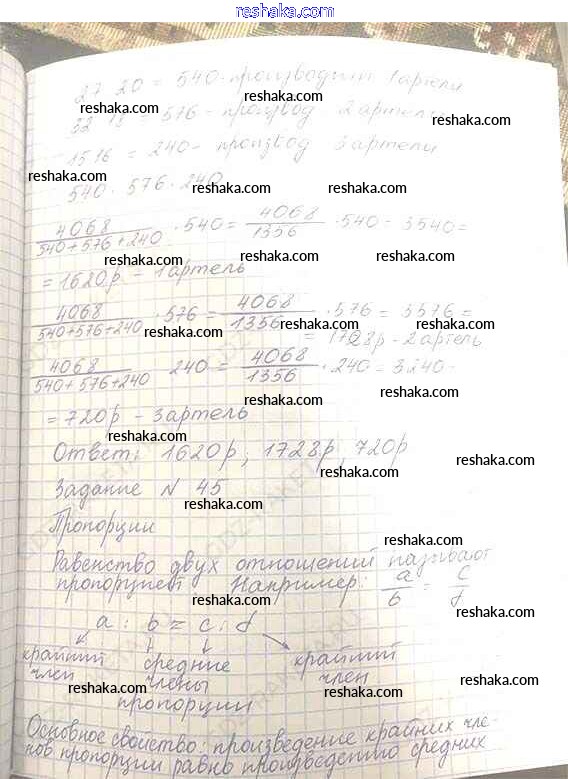 reshaka.com
27 · 20 = 540 - производит 1 артели
reshaka.com
32 · 18 = 576 - произвед 2 артели
reshaka.com
15 · 16 = 240 - произвед 3 артели
reshaka.com
540 · 576 · 240
reshaka.com
4068/540+576+240 · 540 = 4068/1356 · 540 = 3540 =
reshaka.com
reshaka.com
= 1620р - 1 артель
reshaka.com
4068/540+576+240 · 576 = 4068/1356 · 576 = 3576 =
reshaka.com
= 1728р - 2 артель
reshaka.com
4068/540+576+240 240 = 4068/1356 · 240 = 3240 =
reshaka.com
= 720р - 3 артель
reshaka.com
Ответ: 1620р, 1728р, 720р
reshaka.com
Задание N 45
reshaka.com
Пропорции
reshaka.com
Равенство двух отношений называют
пропорцией Например: a/b = c/d
reshaka.com
a : b = c : d
reshaka.com
крайний средние крайний
reshaka.com
член члены член
reshaka.com
reshaka.com
пропорции
Основное свойство: произведение крайних чле-
reshaka.com
нов пропорции равно произведению средних
reshaka.com